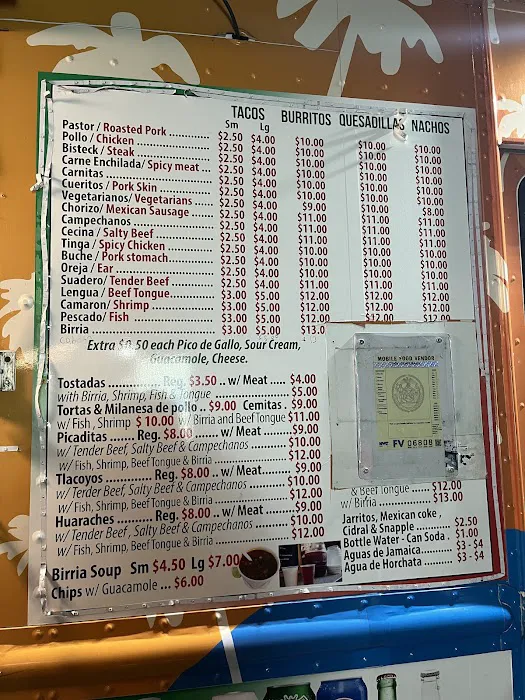 TACOS BURRITOS QUESADILLAS NACHOS
Sm Lg
Pastor / Roasted Pork ........... $2.50 $4.00 $10.00 $10.00 $10.00
Pollo / Chicken .................. $2.50 $4.00 $10.00 $10.00 $10.00
Bisteck / Steak ................... $2.50 $4.00 $10.00 $10.00 $10.00
Carne Enchilada/ Spicy meat ... $2.50 $4.00 $10.00 $10.00 $10.00
Carnitas .......................... $2.50 $4.00 $10.00 $10.00 $10.00
Cueritos / Pork Skin ............ $2.50 $4.00 $10.00 $10.00 $10.00
Vegetarianos/ Vegetarians ..... $2.50 $4.00 $9.00 $10.00 $8.00
Chorizo / Mexican Sausage ....... $2.50 $4.00 $11.00 $11.00 $11.00
Campechanos ..................... $2.50 $4.00 $11.00 $11.00 $11.00
Cecina / Salty Beef .............. $2.50 $4.00 $11.00 $11.00 $11.00
Tinga / Spicy Chicken ........... $2.50 $4.00 $10.00 $10.00 $10.00
Buche / Pork stomach............ $2.50 $4.00 $10.00 $10.00 $10.00
Oreja / Ear ....................... $2.50 $4.00 $10.00 $10.00 $10.00
Suadero/ Tender Beef ........... $2.50 $4.00 $11.00 $11.00 $11.00
Lengua / Beef Tongue............ $3.00 $5.00 $12.00 $12.00 $12.00
Camaron/ Shrimp ................ $3.00 $5.00 $12.00 $12.00 $12.00
Pescado/ Fish .................... $3.00 $5.00 $12.00 $12.00 $12.00
Birria ............................. $3.00 $5.00 $13.0
Extra $0.50 each Pico de Gallo, Sour Cream,
Guacamole, Cheese.
Tostadas ............... Reg. $3.50 .. w/ Meat ..... $4.00
with Birria, Shrimp, Fish & Tongue ................ $5.00
Tortas & Milanesa de pollo .. $9.00 Cemitas . $9.00
w/ Fish , Shrimp $ 10.00 w/ Birria and Beef Tongue $11.00
Picaditas ...... Reg. $8.00 ....... w/ Meat ....... $9.00
w/ Tender Beef, Salty Beef & Campechanos ......... $10.00
w/ Fish, Shrimp, Beef Tongue & Birria ............ $12.00
Tlacoyos ........ Reg. $8.00 .. w/ Meat....... $9.00
w/ Terder Beef, Salty Beef & Campechanos ........ $10.00
w/ Fish, Shrimp, Beef Tongue & Birria ............ $12.00
Huaraches ........ Reg. $8.00 .. w/ Meat....... $9.00
w/ Tender Beef , Salty Beef & Campechanos ........ $10.00
w/ Fish, Shrimp, Beef Tongue & Birria ............ $12.00
Birria Soup Sm $4.50 Lg $7.00
Chips w/ Guacamole ... $6.00
MOBILE FOOD VENDOR
FV 06808
& Beef Tongue ...... $12.00
w/ Birria ............ $13.00
Jarritos, Mexican coke ,
Cidral & Snapple ........... $2.50
Bottle Water - Can Soda . $1.00
Aguas de Jamaica.......... $3 - $4
Agua de Horchata ......... $3 - $4